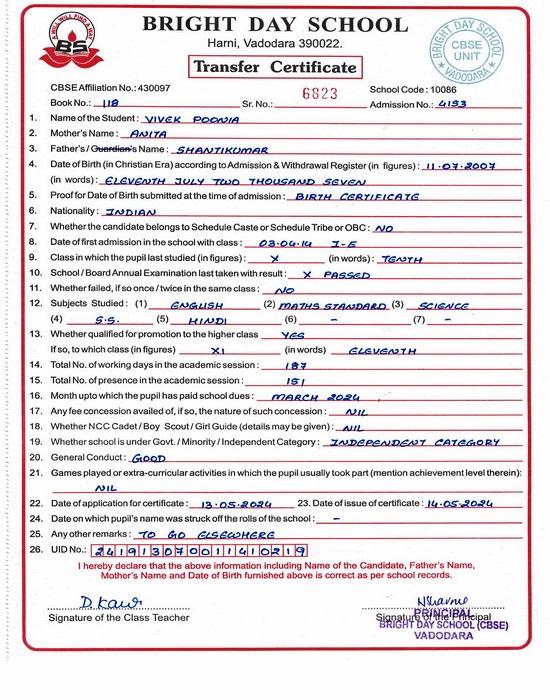 A WILL WILL FIND A WAY
BS
BRIGHT DAY SCHOOL
Harni, Vadodara 390022.
Transfer Certificate
BRIGHT DAY SCHOOL
CBSE
UNIT
VADODARA
CBSE Affiliation No.: 430097 6823 School Code : 10086
Book No.: 118 Sr. No.: Admission No.: 4153
1. Name of the Student : VIVEK POONIA
2. Mother's Name : ANITA
3. Father's / Guardian's Name : SHANTIKUMAR
4. Date of Birth (in Christian Era) according to Admission & Withdrawal Register (in figures) : 11.07.2007
(in words) : ELEVENTH JULY TWO THOUSAND SEVEN
5. Proof for Date of Birth submitted at the time of admission : BIRTH CERTIFICATE
6. Nationality : INDIAN
7. Whether the candidate belongs to Schedule Caste or Schedule Tribe or OBC : NO
8. Date of first admission in the school with class : 03.04.14 I-E
9. Class in which the pupil last studied (in figures) : X (in words) : TENTH
10. School / Board Annual Examination last taken with result : X PASSED
11. Whether failed, if so once / twice in the same class : NO
12. Subjects Studied : (1) ENGLISH (2) MATHS STANDARD (3) SCIENCE
(4) S.S. (5) HINDI (6) - (7) -
13. Whether qualified for promotion to the higher class YES
If so, to which class (in figures) XI (in words) ELEVENTH
14. Total No. of working days in the academic session : 187
15. Total No. of presence in the academic session : 151
16. Month upto which the pupil has paid school dues : MARCH 2024
17. Any fee concession availed of, if so, the nature of such concession : NIL
18. Whether NCC Cadet / Boy Scout / Girl Guide (details may be given) : NIL
19. Whether school is under Govt. / Minority / Independent Category : INDEPENDENT CATEGORY
20. General Conduct : GOOD
21. Games played or extra-curricular activities in which the pupil usually took part (mention achievement level therein) :
NIL
22. Date of application for certificate : 13.05.2024 23. Date of issue of certificate : 14.05.2024
24. Date on which pupil's name was struck off the rolls of the school : -
25. Any other remarks : TO GO ELSEWHERE
26. UID No.: 241913070011410219
I hereby declare that the above information including Name of the Candidate, Father's Name,
Mother's Name and Date of Birth furnished above is correct as per school records.
D. Kaur
Signature of the Class Teacher
Signature of the Principal
PRINCIPAL
BRIGHT DAY SCHOOL (CBSE)
VADODARA